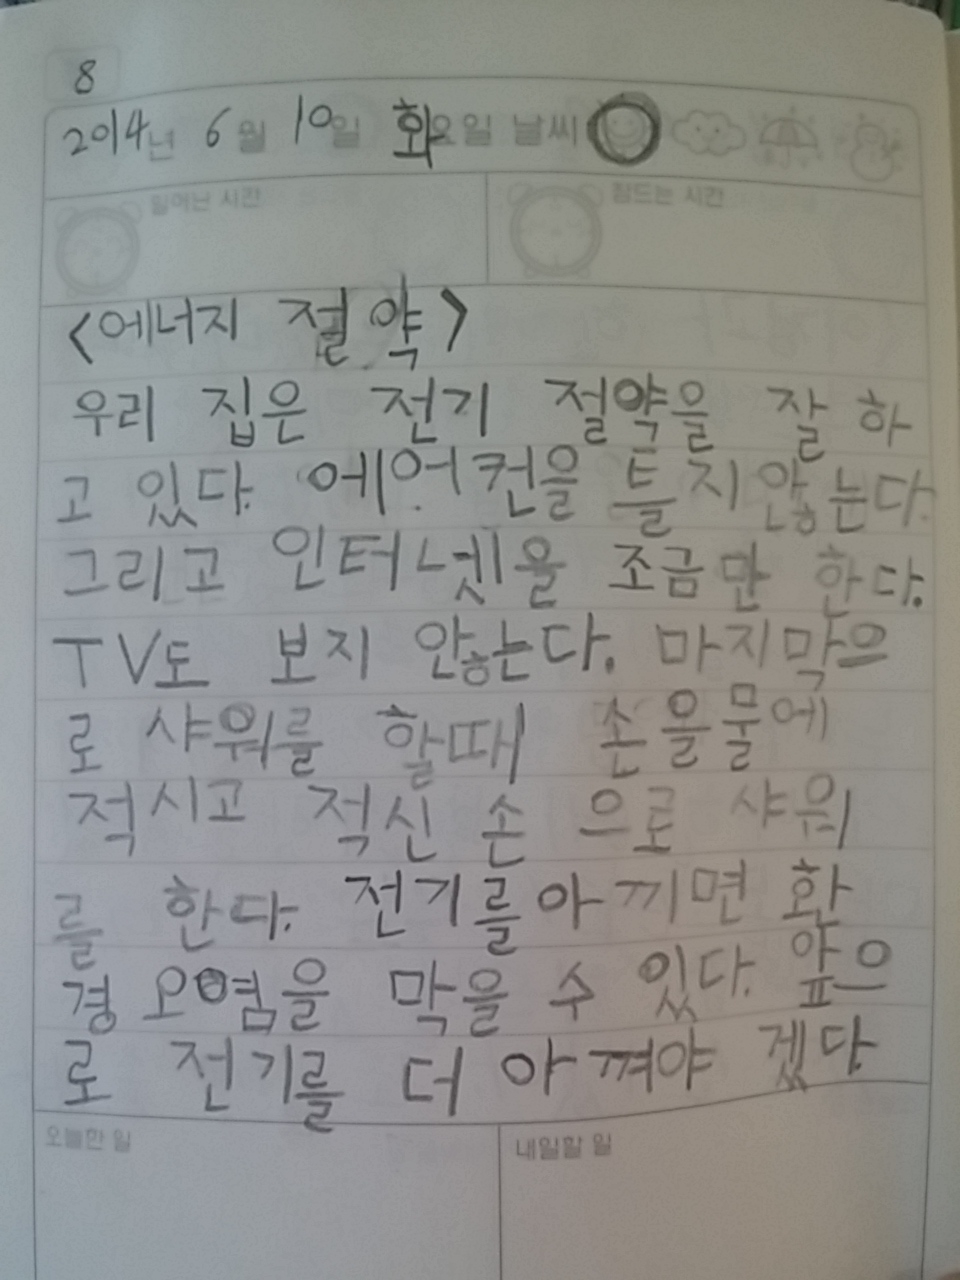 8
2014년 6월 10일 화요일 날씨
일어난 시간 잠드는 시간
<에너지 절약>
우리 집은 전기 절약을 잘 하
고 있다. 에어컨을 틀지 않는다.
그리고 인터넷을 조금만 한다.
TV도 보지 않는다. 마지막으
로 샤워를 할때 손을물에
적시고 적신 손 으로 샤워
를 한다. 전기를아끼면 환
경 오염을 막을 수 있다. 앞으
로 전기를 더 아껴야 겠다
오늘한 일 내일할 일